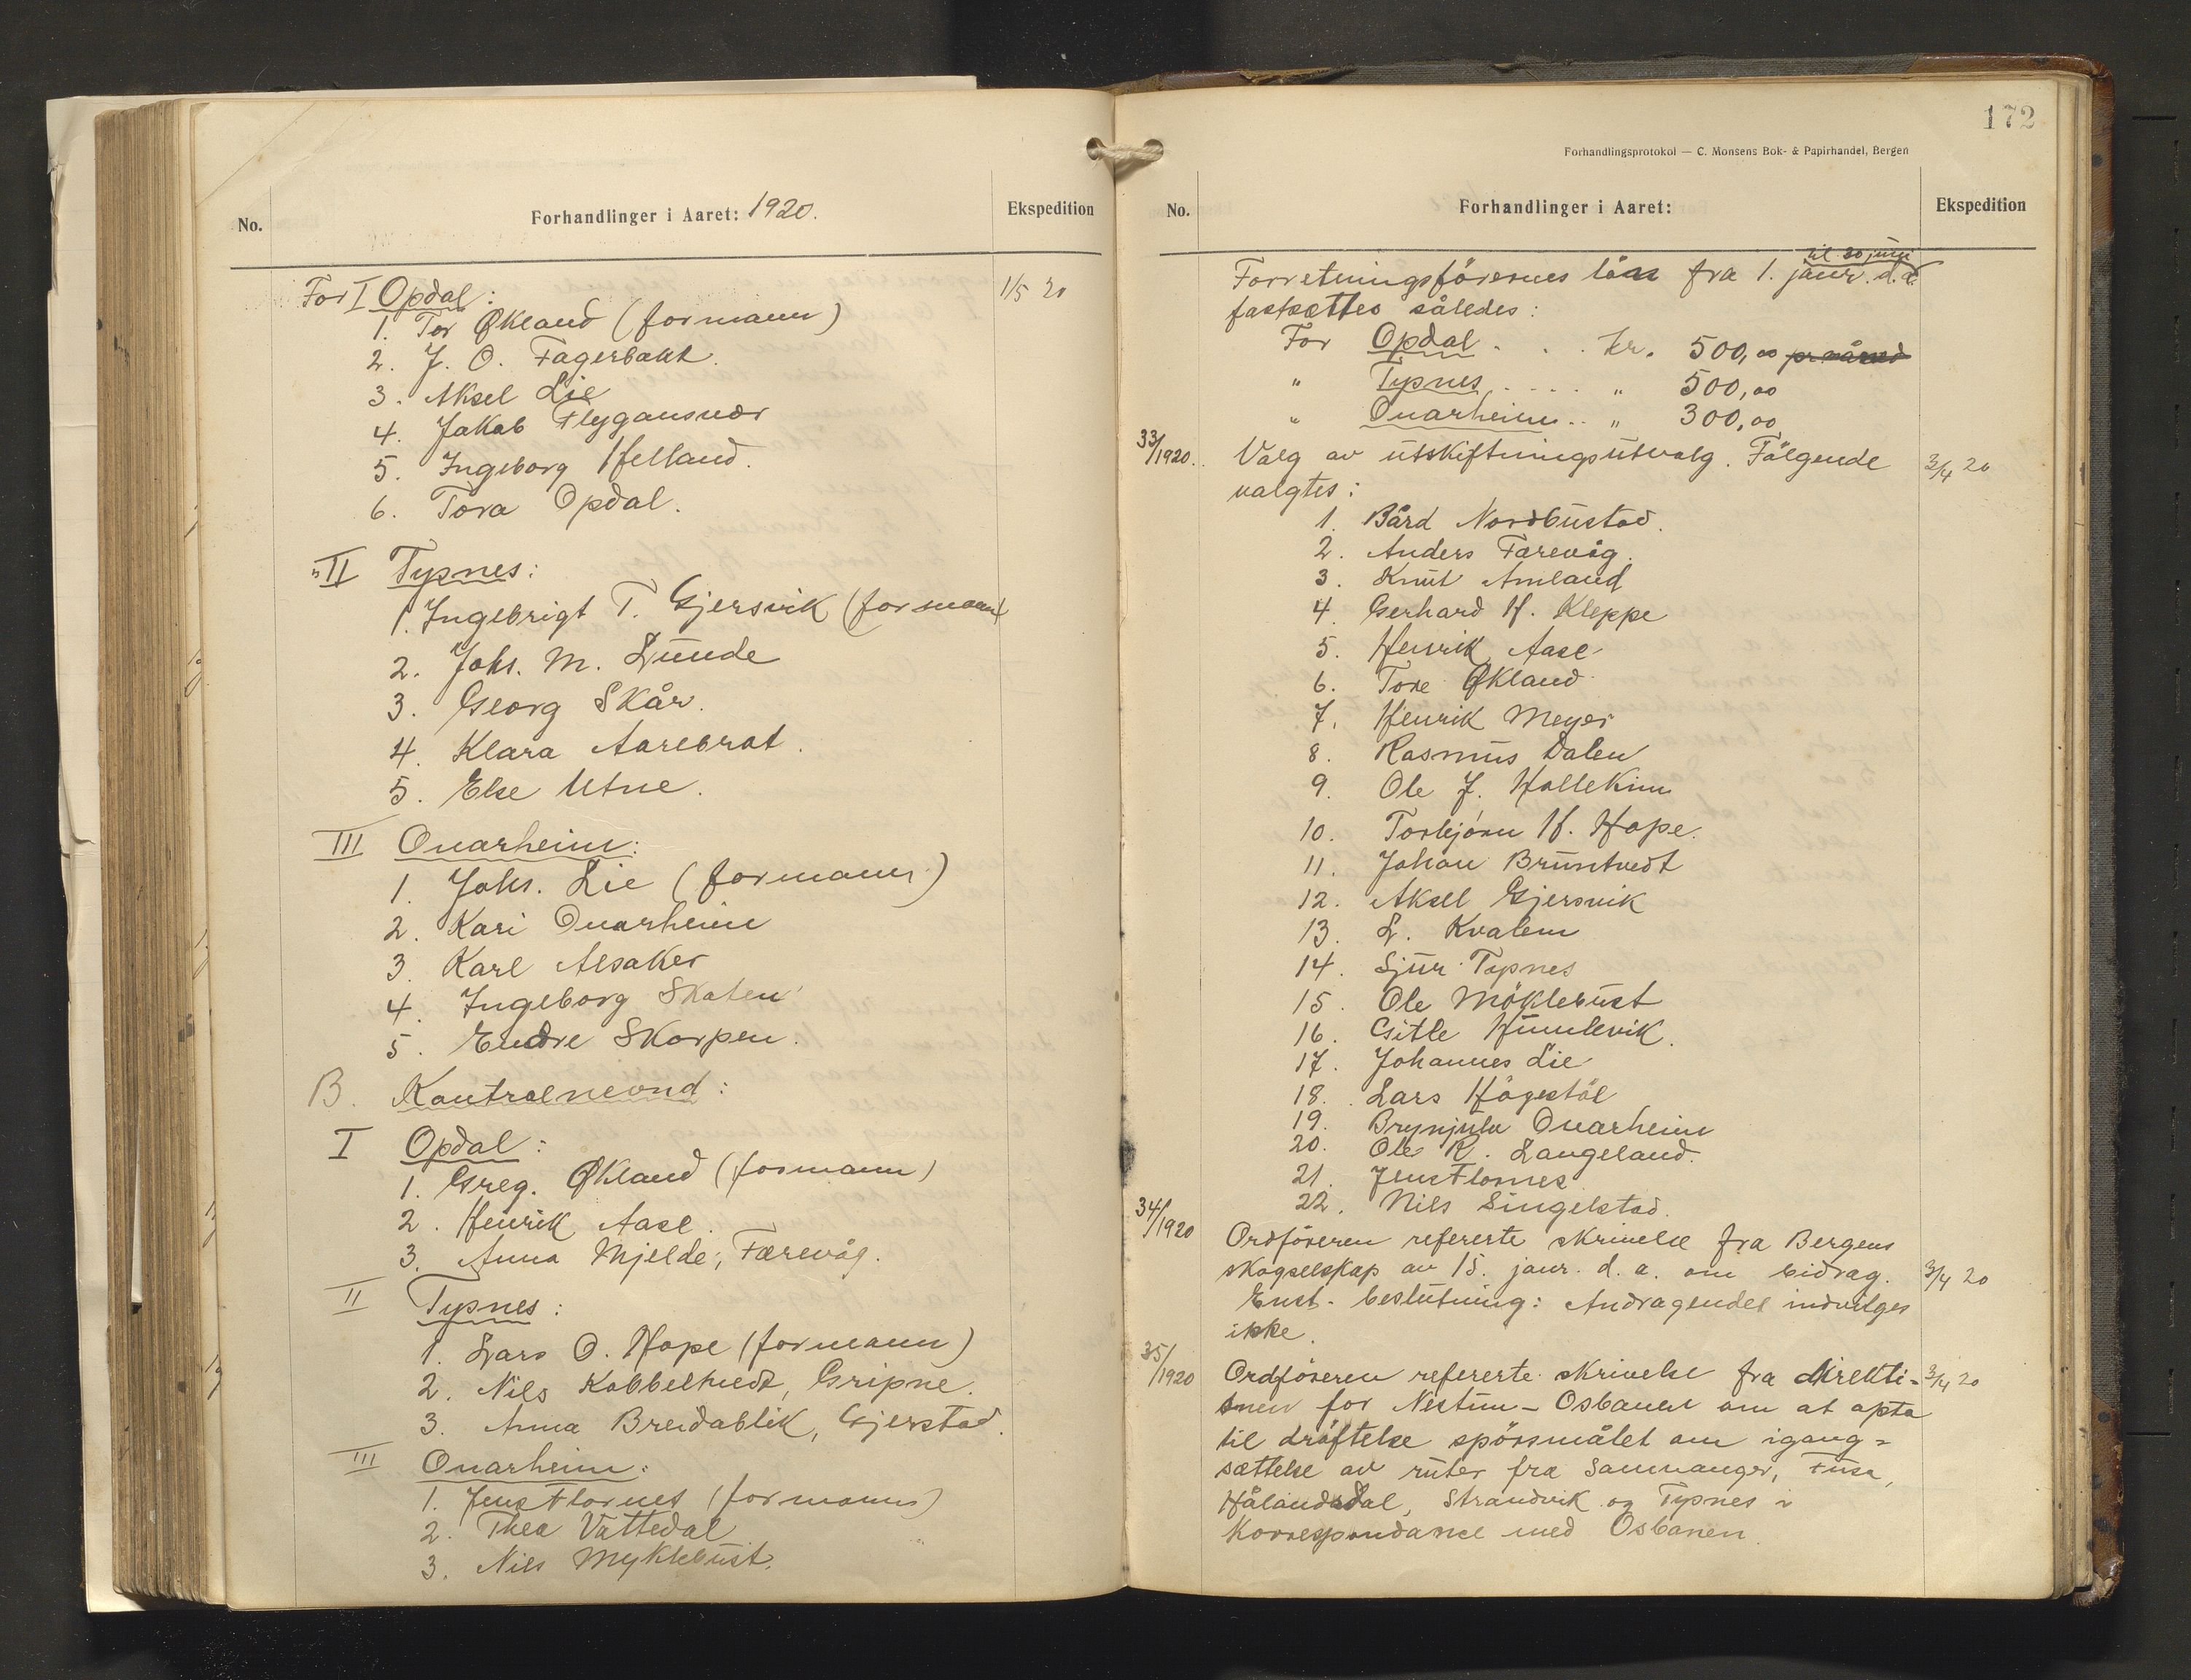 No.
Forhandlinger i Aaret: 1920.
Ekspedition
For I Opdal:
1/5 20
1. Tor Økland (formann)
2. J. O. Fagerbakk.
3. Aksel Lie
4. Jakob Flygansvær
5. Ingeborg Helland.
6. Tora Opdal.
" II Tysnes:
1. Ingebrigt T. Gjersvik (formann)
2. Johs. M. Lunde
3. Georg Skår.
4. Klara Aarebrot.
5. Else Utne.
III Onarheim:
1. Johs. Lie (formann)
2. Kari Onarheim
3. Karl Alsaker
4. Ingeborg Skaten
5. Endre Skorpen.
B. Kontrolnevnd:
I Opdal:
1. Greg. Økland (formann)
2. Henrik Aase.
3. Anna Mjelde, Færevåg.
II Tysnes:
1. Lars O. Hope (formann)
2. Nils Kobbeltvedt, Gripne.
3. Anna Breidablik, Gjerstad.
III Onarheim:
1. Jens Flornes (formann)
2. Thea Vattedal
3. Nils Myklebust.
172
Forhandlingsprotokol — C. Monsens Bok- & Papirhandel, Bergen
No.
Forhandlinger i Aaret:
Ekspedition
til 30 juni
Forretningsförernes lön fra 1. janr. d.a.
fastsættes således:
For Opdal . . . kr. 500,00 pr. måned
" Tysnes . . . . " 500,00
" Onarheim . . " 300,00
33/1920. Valg av utskiftningsutvalg. Fölgende 3/4 20
valgtes:
1. Bård Nordbustad.
2. Anders Færevåg.
3. Knut Amland
4. Gerhard H. Kleppe
5. Henrik Aase
6. Tore Økland
7. Henrik Meyer
8. Rasmus Dalen
9. Ole J. Hallekim
10. Torbjörn H. Hope.
11. Johan Bruntvedt
12. Aksel Gjersvik
13. L. Kvalem
14. Sjur Tysnes
15. Ole Möklebust
16. Gitle Humlevik.
17. Johannes Lie
18. Lars Högestöl
19. Brynjulv Onarheim
20. Ole K. Langeland.
21. Jens Flornes
22. Nils Singelstad.
34/1920 Ordföreren refererte skrivelse fra Bergens
skogselskap av 15. janr. d. a. om bidrag. 3/4 20
Enst. beslutning: Andragendet indvilges
ikke.
35/1920 Ordföreren refererte skrivelse fra direkti- 3/4 20
onen for Nestun-Osbanen om at opta
til dröftelse spörsmålet om igang-
sættelse av ruter fra Samnanger, Fusa,
Hålandsdal, Strandvik og Tysnes i
korrespondance med Osbanen